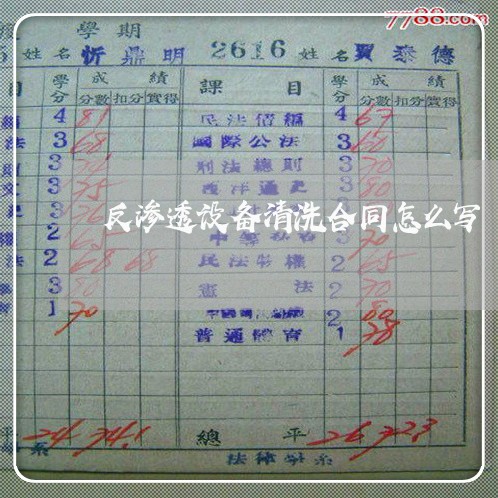 7788.com
學期
姓名 忻鼎明 2616 姓名 賈泰德
目 學分 成績 課目 學分 成績
分數 扣分 實得 分數 扣分 實得
4 81 民法債編 4 67
法 3 68 國際公法 3 60
3 刑法總則 3 70
3 75 西洋通史 3 80
反渗透设备清洗合同怎么写
2 3 70
法 2 68 68 民法物權 2 65
3 80 憲法 2 70
1 70 2 80
普通體育 1 78
平 24 74.1 總平 26 72.3
系 法律學系